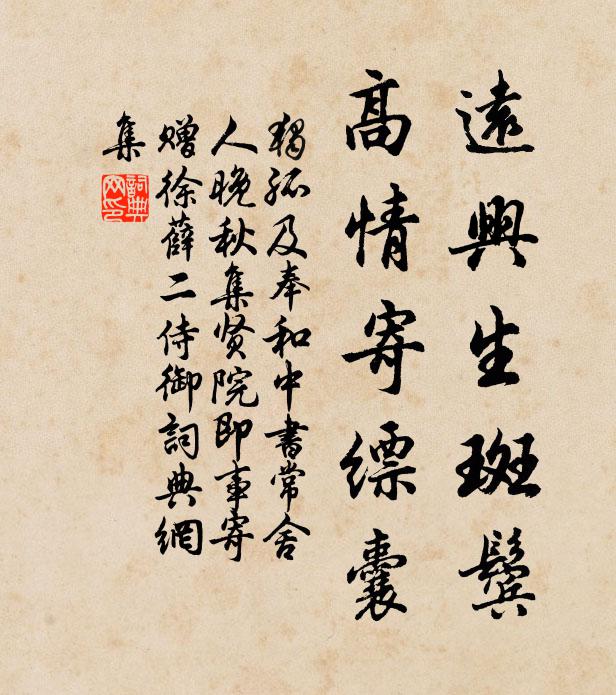 遠興生斑鬢
高情寄缥囊
獨孤及奉和中書常舍
人晚秋集贤院即事寄
赠徐薛二侍御詞典網
集
詞典
网印